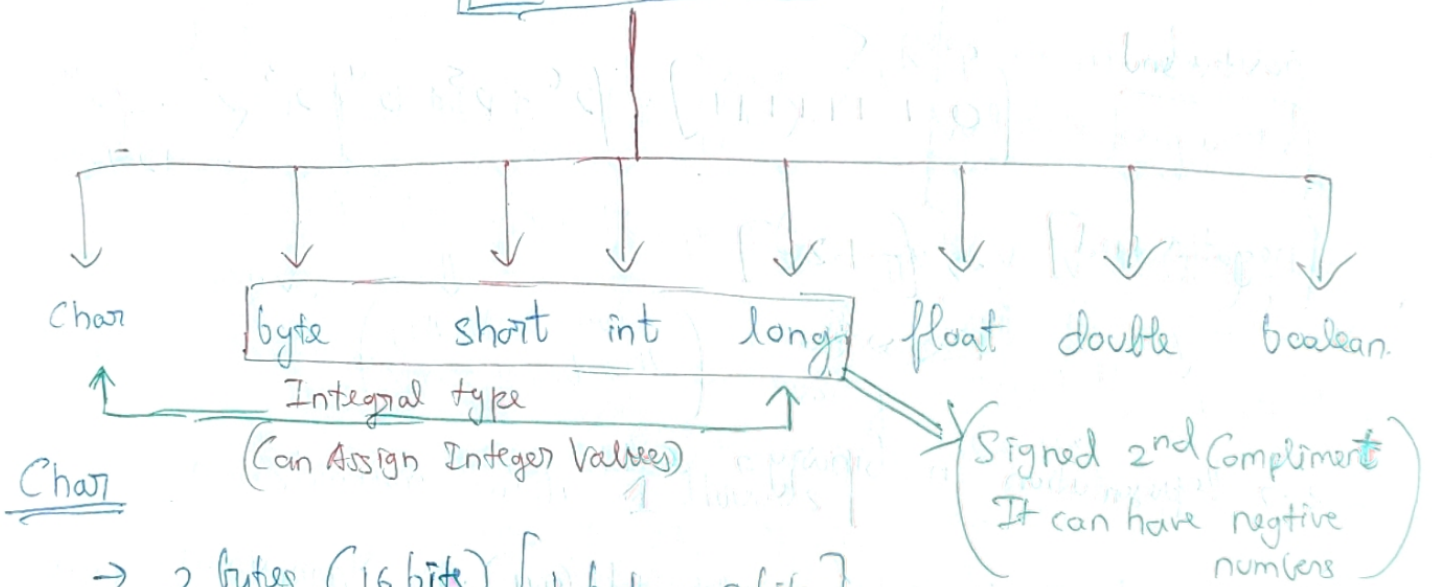 Char byte short int long float double boolean
Integral type
(Can Assign Integer Values)
(Signed 2nd Compliment
It can have negtive
numbers)
Char
→ 2 bytes (16 bite) [